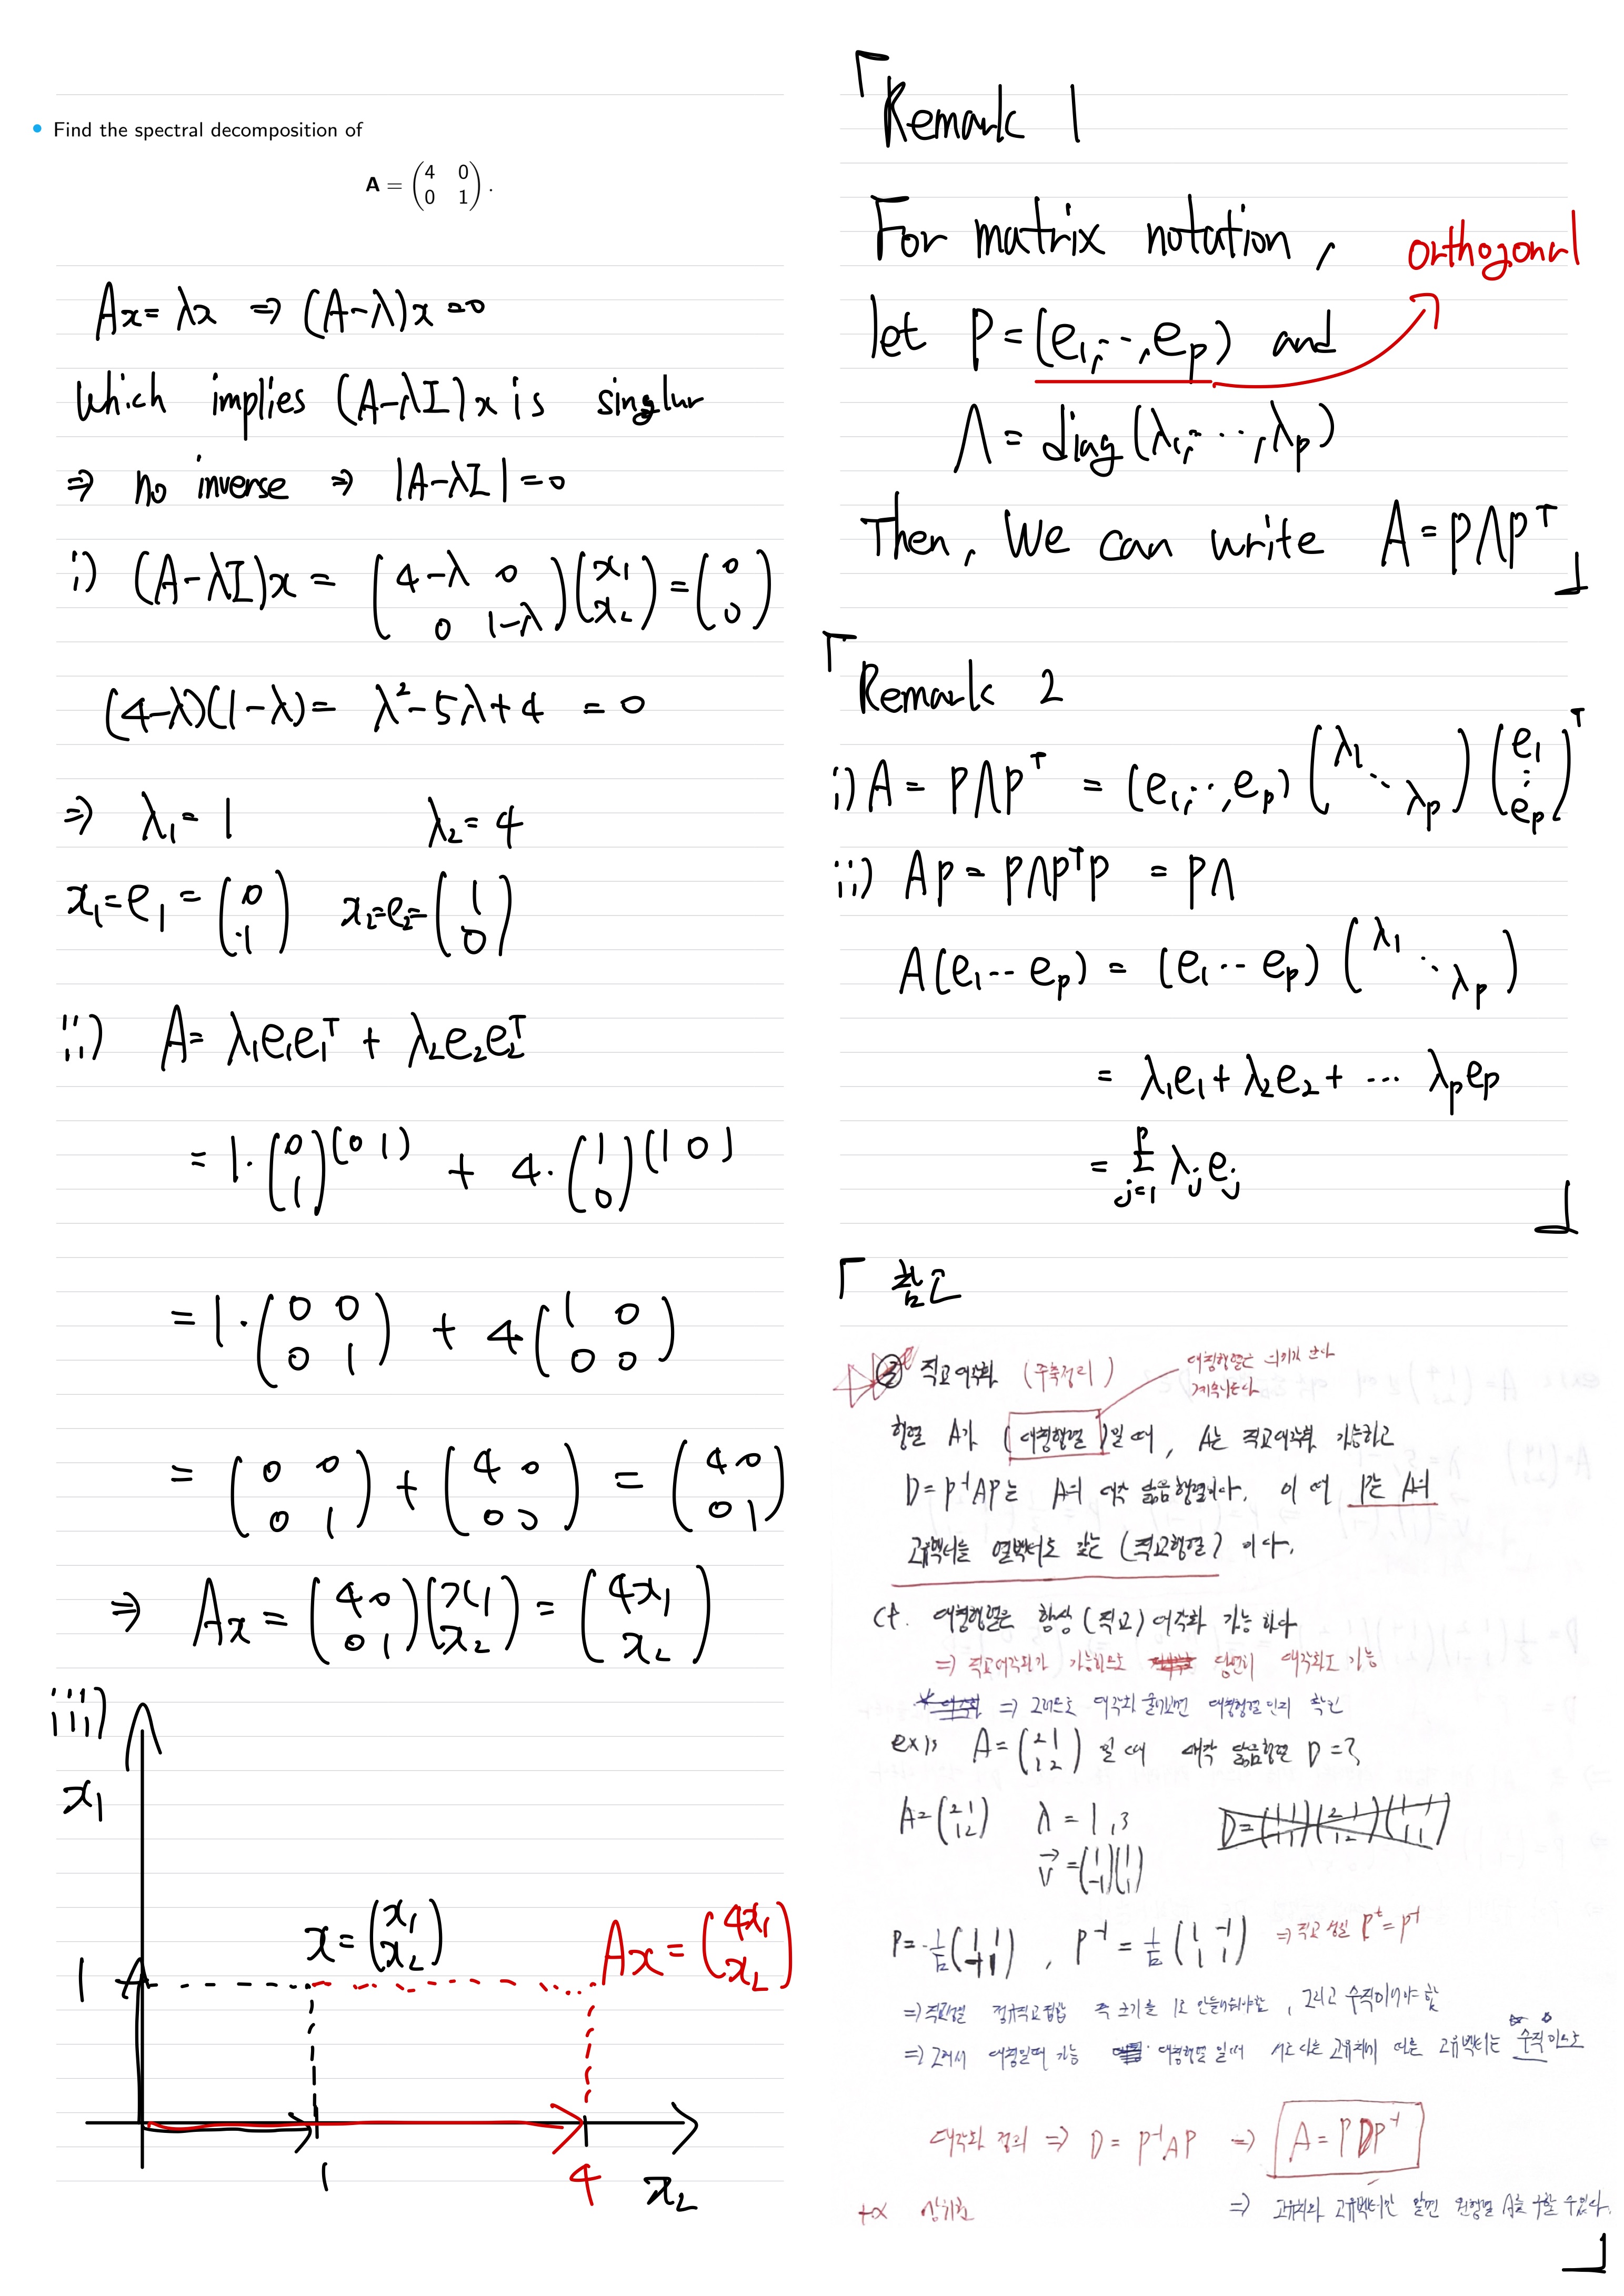 • Find the spectral decomposition of
A = (4 0
0 1).
Ax = λx ⇒ (A-λ)x = 0
which implies (A-λI)x is singlur
⇒ no inverse ⇒ |A-λI| = 0
i) (A-λI)x = (4-λ 0
0 1-λ)(x₁
x₂) = (0
0)
(4-λ)(1-λ) = λ²-5λ+4 = 0
⇒ λ₁ = 1 λ₂ = 4
x₁ = e₁ = (0
1) x₂ = e₂ = (1
0)
ii) A = λ₁e₁e₁ᵀ + λ₂e₂e₂ᵀ
= 1·(0
1)(0 1) + 4·(1
0)(1 0)
= 1·(0 0
0 1) + 4(1 0
0 0)
= (0 0
0 1) + (4 0
0 0) = (4 0
0 1)
⇒ Ax = (4 0
0 1)(x₁
x₂) = (4x₁
x₂)
iii)
x₁
x = (x₁
x₂)
Ax = (4x₁
x₂)
1
1
4
x₂
「Remark 1
For matrix notation,
orthogonal
let P = (e₁, ⋯, eₚ) and
Λ = diag(λ₁, ⋯, λₚ)
Then, we can write A = PΛPᵀ 」
「Remark 2
i) A = PΛPᵀ = (e₁, ⋯, eₚ)(λ₁ ⋱ λₚ)(e₁
⋮
eₚ)ᵀ
ii) AP = PΛPᵀP = PΛ
A(e₁ ⋯ eₚ) = (e₁ ⋯ eₚ)(λ₁ ⋱ λₚ)
= λ₁e₁ + λ₂e₂ + ⋯ λₚeₚ
= Σ_{j=1}^{p} λⱼeⱼ
」
「참고
③ 직교대각화 (주축정리)
대칭행렬은
행렬 A가 (대칭행렬)일 때, A는 직교대각화 가능하고
D = P⁻¹AP는 A의 대각 닮음행렬이다. 이 때 P는 A의
고유벡터를 열벡터로 갖는 (직교행렬) 이다.
cf. 대칭행렬은 항상 (직교) 대각화 가능 하다
⇒ 직교대각화가 가능하므로 당연히 대각화도 가능
⇒ 그러므로 대각화 물어보면 대칭행렬인지 확인
ex1) A = (2 1
1 2) 일 때 대각 닮음행렬 D = ?
A = (2 1
1 2) λ = 1, 3 D = (1 1
-1 1)(2 1
1 2)(1 -1
1 1)
v⃗ = (1
-1)(1
1)
P = 1/√2 (1 1
-1 1), P⁻¹ = 1/√2 (1 -1
1 1) ⇒ 직교 성질 Pᵗ = P⁻¹
⇒ 직교행렬 정규직교집합 즉 크기를 1로 만들어줘야함, 그리고 수직이어야 함
⇒ 그래서 대칭일때 가능 대칭행렬 일때 서로 다른 고유치에 따른 고유벡터는 수직이므로
대각화 정의 ⇒ D = P⁻¹AP ⇒ A = PDP⁻¹
+α
⇒ 고유치와 고유벡터만 알면 원행렬 A를 구할 수 있다.
」